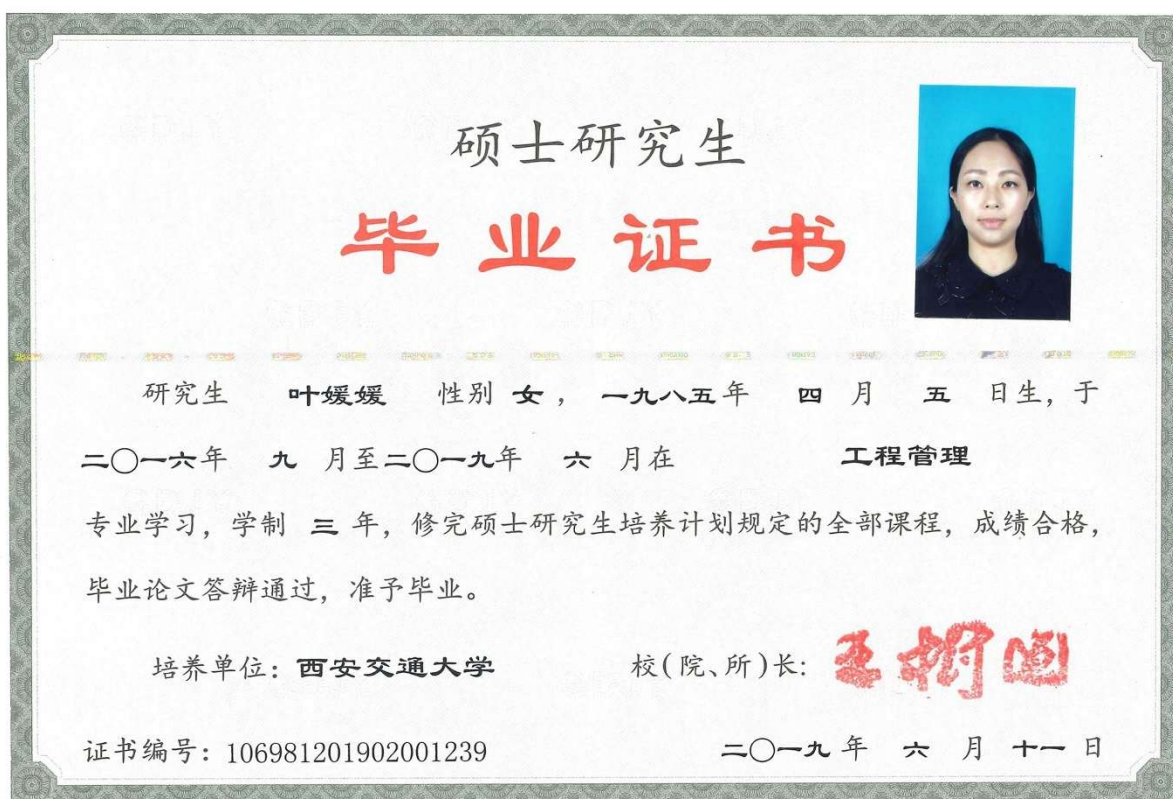 硕士研究生
毕业证书
研究生 叶媛媛 性别 女， 一九八五年 四 月 五 日生，于
二〇一六年 九 月至二〇一九年 六 月在 工程管理
专业学习，学制 三 年，修完硕士研究生培养计划规定的全部课程，成绩合格，
毕业论文答辩通过，准予毕业。
培养单位：西安交通大学 校(院、所)长:
证书编号：106981201902001239 二〇一九 年 六 月 十一 日